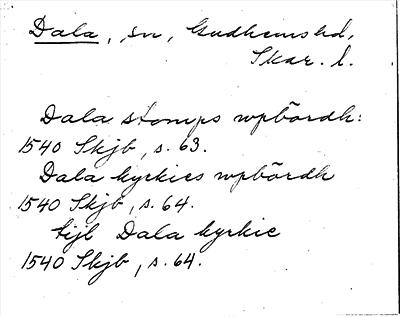 Dala, sn, Gudhems hd,
Skar. l.
Dala stomps wpbördh:
1540 Skjb, s. 63.
Dala kyrkies wpbördh
1540 Skjb, s. 64.
tijl Dala kyrkie
1540 Skjb, s. 64.